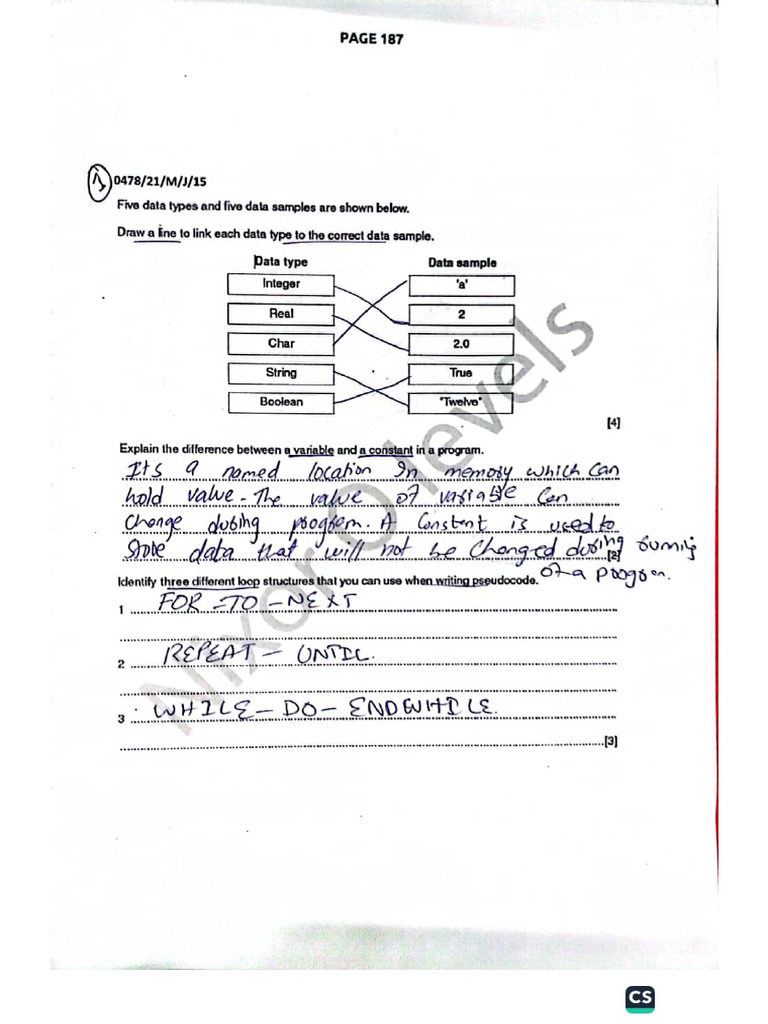 PAGE 187
1) 0478/21/M/J/15
Five data types and five data samples are shown below.
Draw a line to link each data type to the correct data sample.
Data type Data sample
Integer 'a'
Real 2
Char 2.0
String True
Boolean "Twelve"
[4]
Explain the difference between a variable and a constant in a program.
Its a named location in memory which can
hold value. The value of variable can
change during program. A constant is used to
store data that will not be changed during runing
of a program.
[2]
Identify three different loop structures that you can use when writing pseudocode.
1 FOR - TO - NEXT
2 REPEAT - UNTIL.
3 WHILE - DO - ENDWHILE.
[3]
Nixor O levels
CS